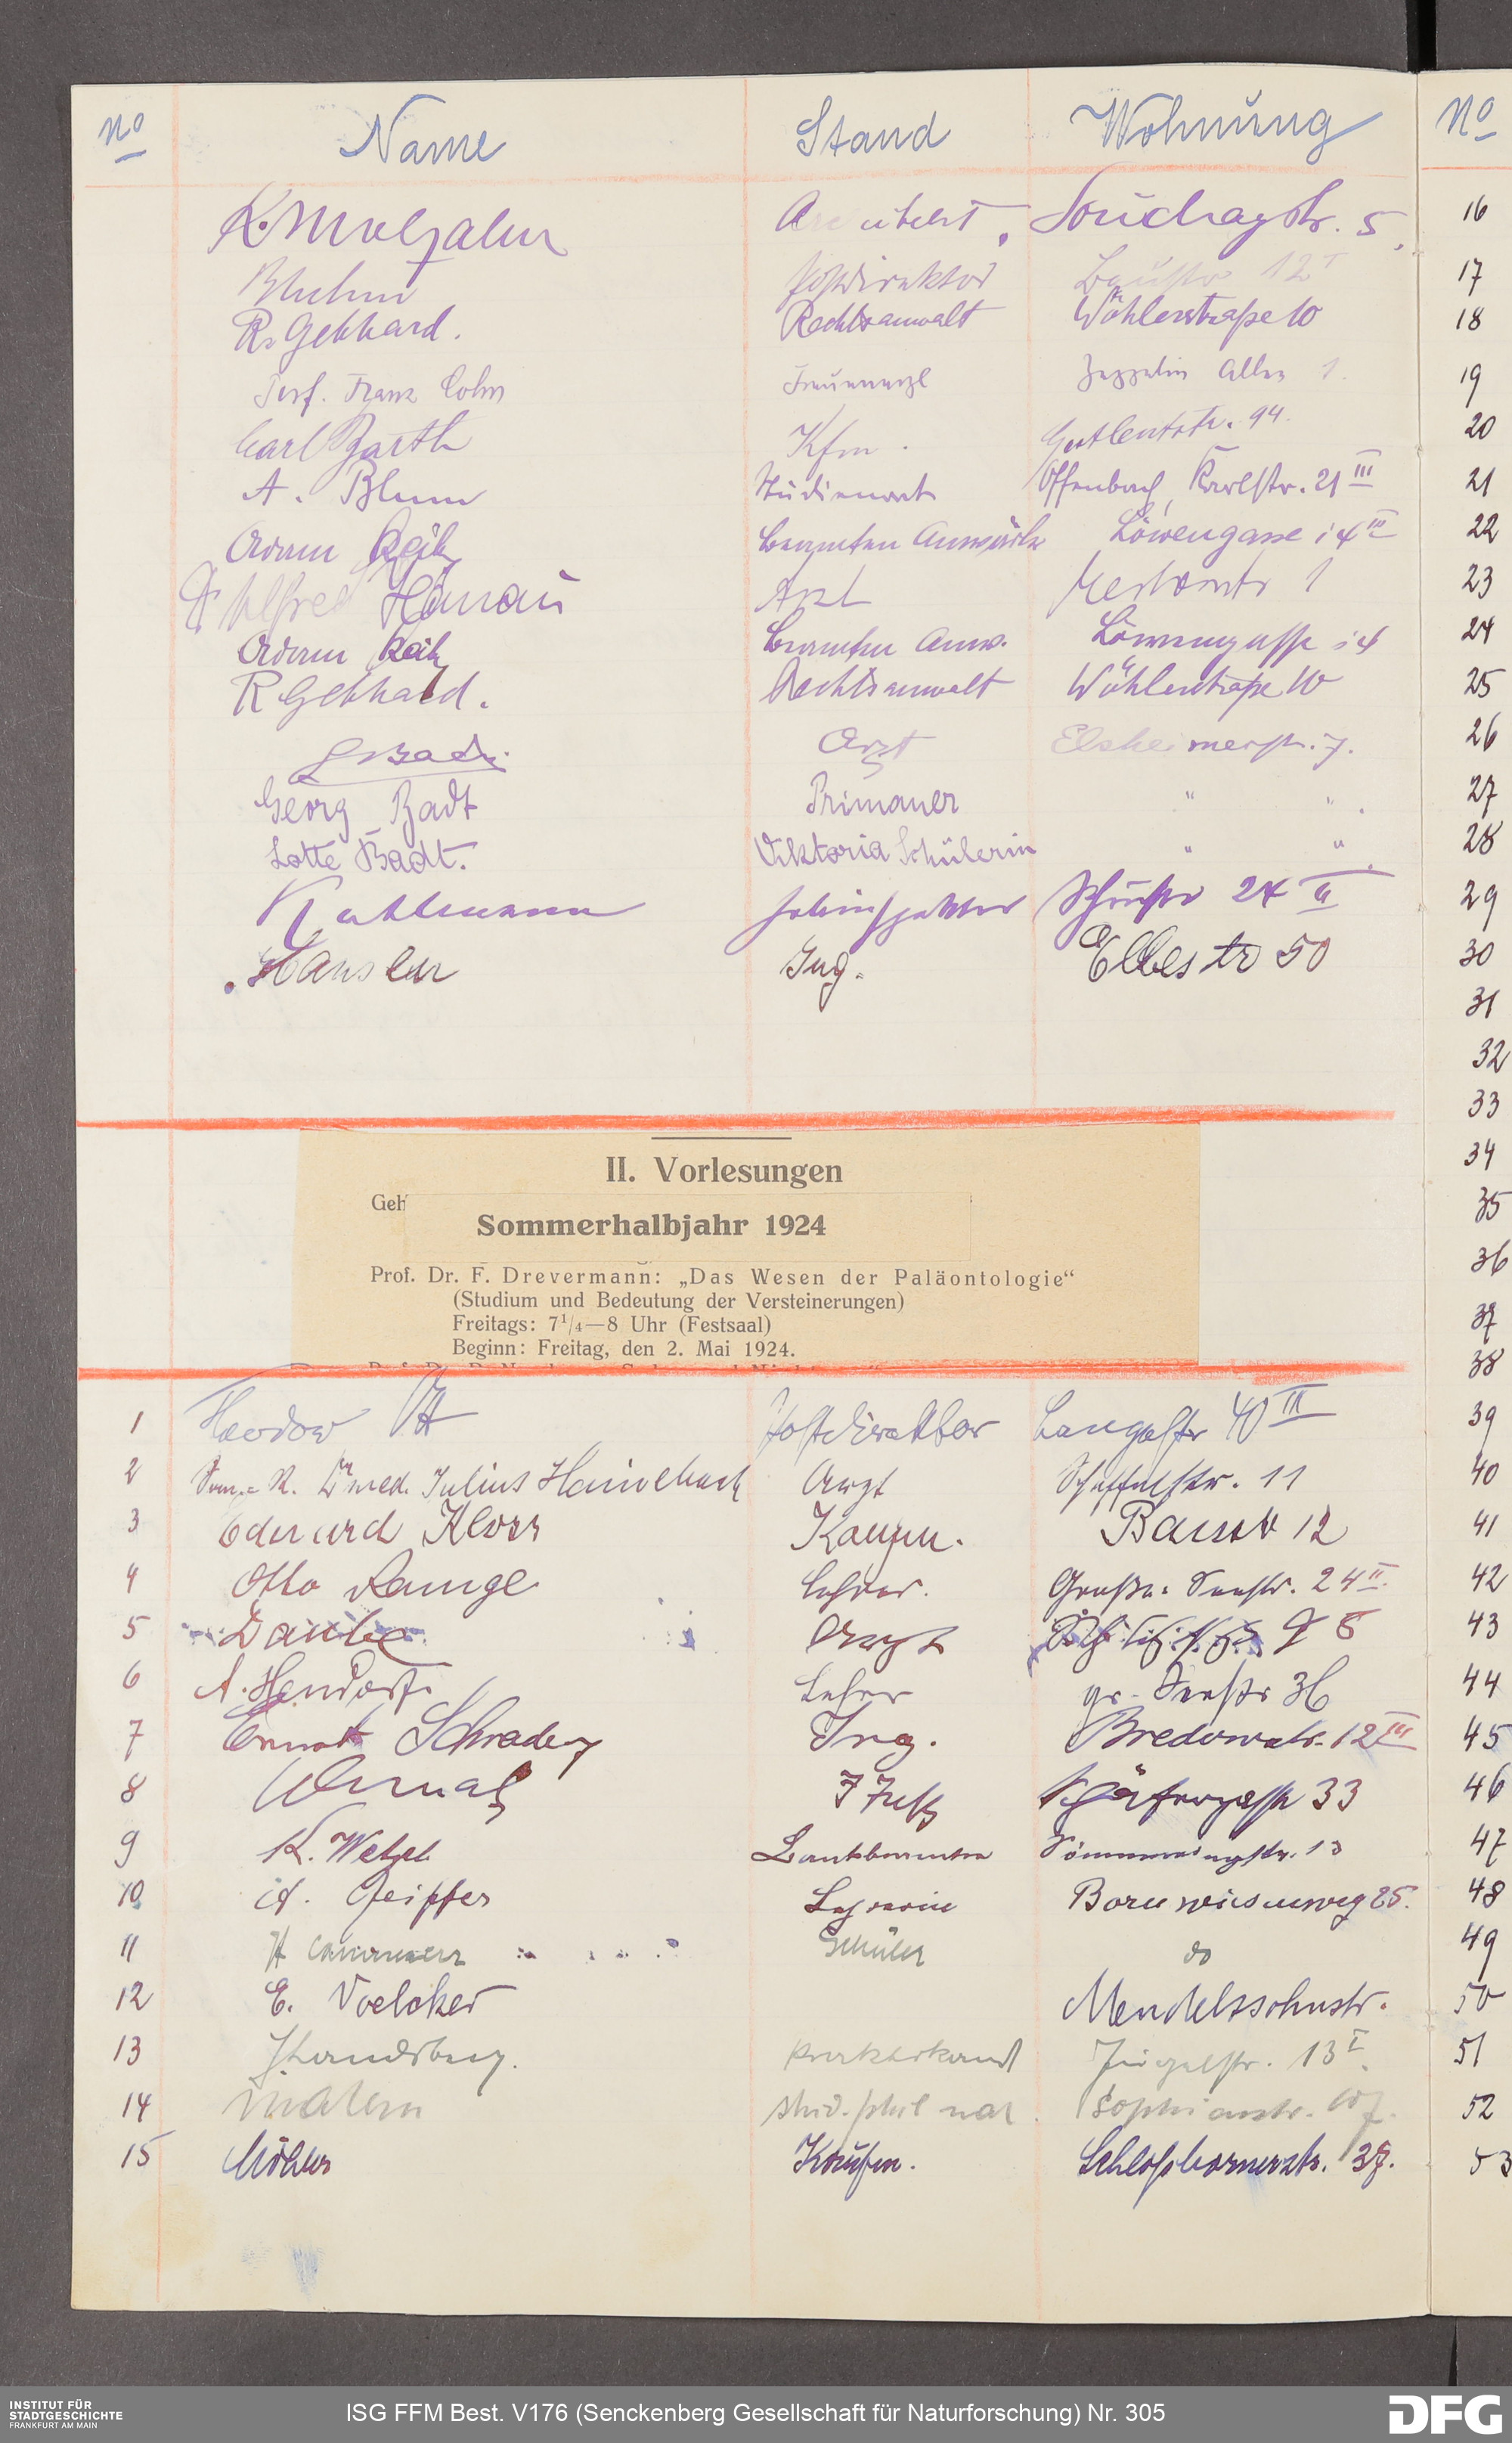 No Name Stand Wohnung No
K. Molzahn Architekt. Souchaystr. 5. 16
Bluhm Postdirektor Baustr 12 I 17
R. Gebhard. Rechtsanwalt Wöhlerstraße 10 18
Prof. Franz Cohn Frauenarzt Zeppelin Allee 1. 19
Carl Barth Kfm. Gutleutstr. 94. 20
A. Blum Studienrat Offenbach, Karlstr. 21 III 21
Adam Beamten Anwärter Löwengasse 14 III 22
Dr Alfred Hanau Arzt 1 23
Adam Beamten Anw. Löwengasse 14 24
R Gebhard. Rechtsanwalt Wöhlerstraße 10 25
Badt. Arzt Elsheimerstr. 7. 26
Georg Badt Primaner " " . 27
Lotte Badt. Viktoria Schülerin " " . 28
Kuhlmann 24 II 29
Hansler Ing. Elbestr 50 30
31
32
33
II. Vorlesungen 34
Geh
Sommerhalbjahr 1924 35
Prof. Dr. F. Drevermann: „Das Wesen der Paläontologie“ 36
(Studium und Bedeutung der Versteinerungen)
Freitags: 7 1/4—8 Uhr (Festsaal) 37
Beginn: Freitag, den 2. Mai 1924.
38
1 Theodor Postdirektor Langestr 40 III 39
2 San.-R. Dr med. Julius Hainebach Arzt Scheffelstr. 11 40
3 Eduard Kloss Kaufm. Baustr 12 41
4 Otto Runge Lehrer. Große Seestr. 24 II. 42
5 Daube Arzt 43
6 A. Hendorf Lehrer gr. Seestr 36 44
7 Ernst Schrader Ing. Bredowstr. 12 III 45
8 Schäfergasse 33 46
9 K. Wetzel Bankbeamter Sömmeringstr. 13 47
10 A. Geipfer Lehrerin Bornwiesenweg 25. 48
11 H Schüler do 49
12 E. Voelcker Mendelssohnstr. 50
13 Landsberg. Praktikant Jügelstr. 13 I. 51
14 Matern stud. phil nat. Sophienstr. 52
15 Köhler Kaufm. Schloßbornerstr. 37. 53
INSTITUT FÜR
STADTGESCHICHTE
FRANKFURT AM MAIN
ISG FFM Best. V176 (Senckenberg Gesellschaft für Naturforschung) Nr. 305
DFG